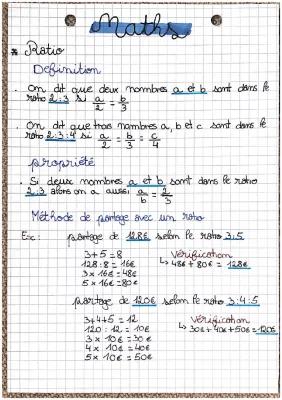 Maths
* Ratio
Définition
. On dit que deux nombres a et b sont dans le
ratio 2:3 si a/2 = b/3
. On dit que trois nombres a, b et c sont dans le
ratio 2:3:4 si a/2 = b/3 = c/4
propriété
. Si deux nombres a et b sont dans le ratio
2:3 alors on a aussi a/b = 2/3
Méthode de partage avec un ratio
Ex: partage de 128€ selon le ratio 3:5
3+5=8
128:8=16€
3×16=48€
5×16=80€
Vérification
↳ 48€+80€=128€
partage de 120€ selon le ratio 3:4:5
3+4+5=12
120:12=10€
3×10€=30€
4×10€=40€
5×10€=50€
Vérification
↳ 30€+40€+50€=120€